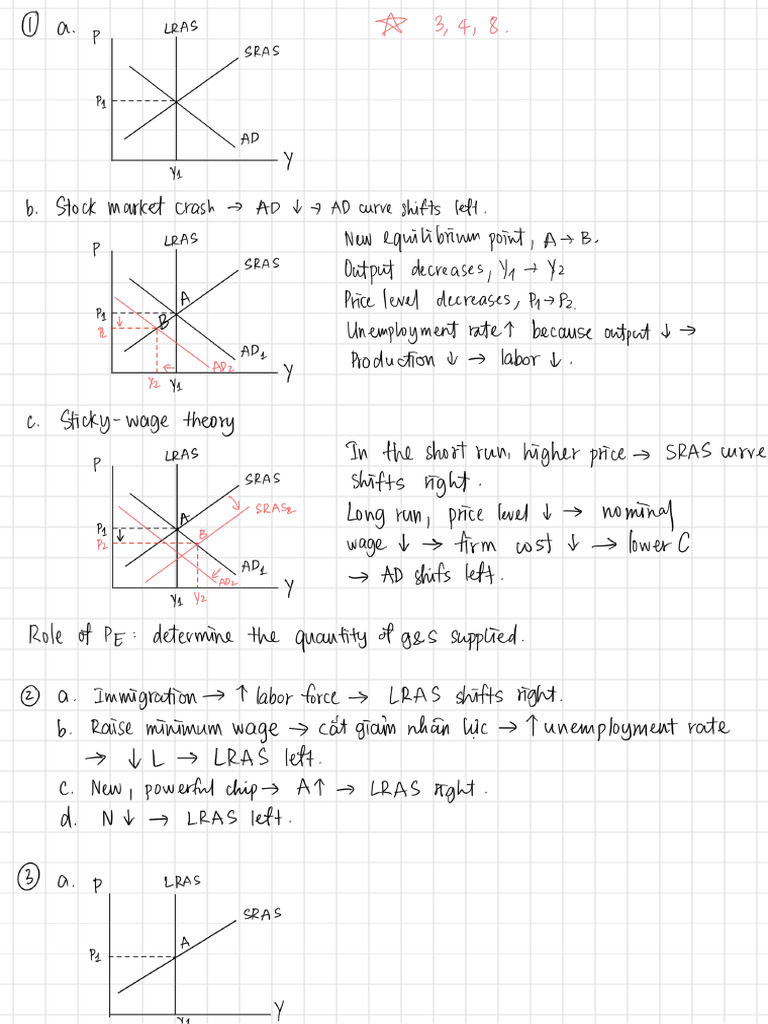 ① a.
☆ 3, 4, 8.
P
LRAS
SRAS
P1
AD
Y1
Y
b. Stock market crash → AD ↓ → AD curve shifts left.
P
LRAS
SRAS
A
P1
B
P2
AD1
AD2
Y2 Y1
Y
New equilibrium point, A → B.
Output decreases, Y1 → Y2
Price level decreases, P1 → P2.
Unemployment rate ↑ because output ↓ →
Production ↓ → labor ↓.
c. Sticky-wage theory
P
LRAS
SRAS
SRAS2
A
P1
B
P2
AD1
AD2
Y1 Y2
Y
In the short run, higher price → SRAS curve
shifts right.
Long run, price level ↓ → nominal
wage ↓ → firm cost ↓ → lower C
→ AD shifs left.
Role of PE: determine the quantity of g&s supplied.
② a. Immigration → ↑ labor force → LRAS shifts right.
b. Raise minimum wage → cắt giảm nhân lực → ↑ unemployment rate
→ ↓ L → LRAS left.
c. New, powerful chip → A↑ → LRAS right.
d. N ↓ → LRAS left.
③ a.
P
LRAS
SRAS
A
P1
Y1
Y